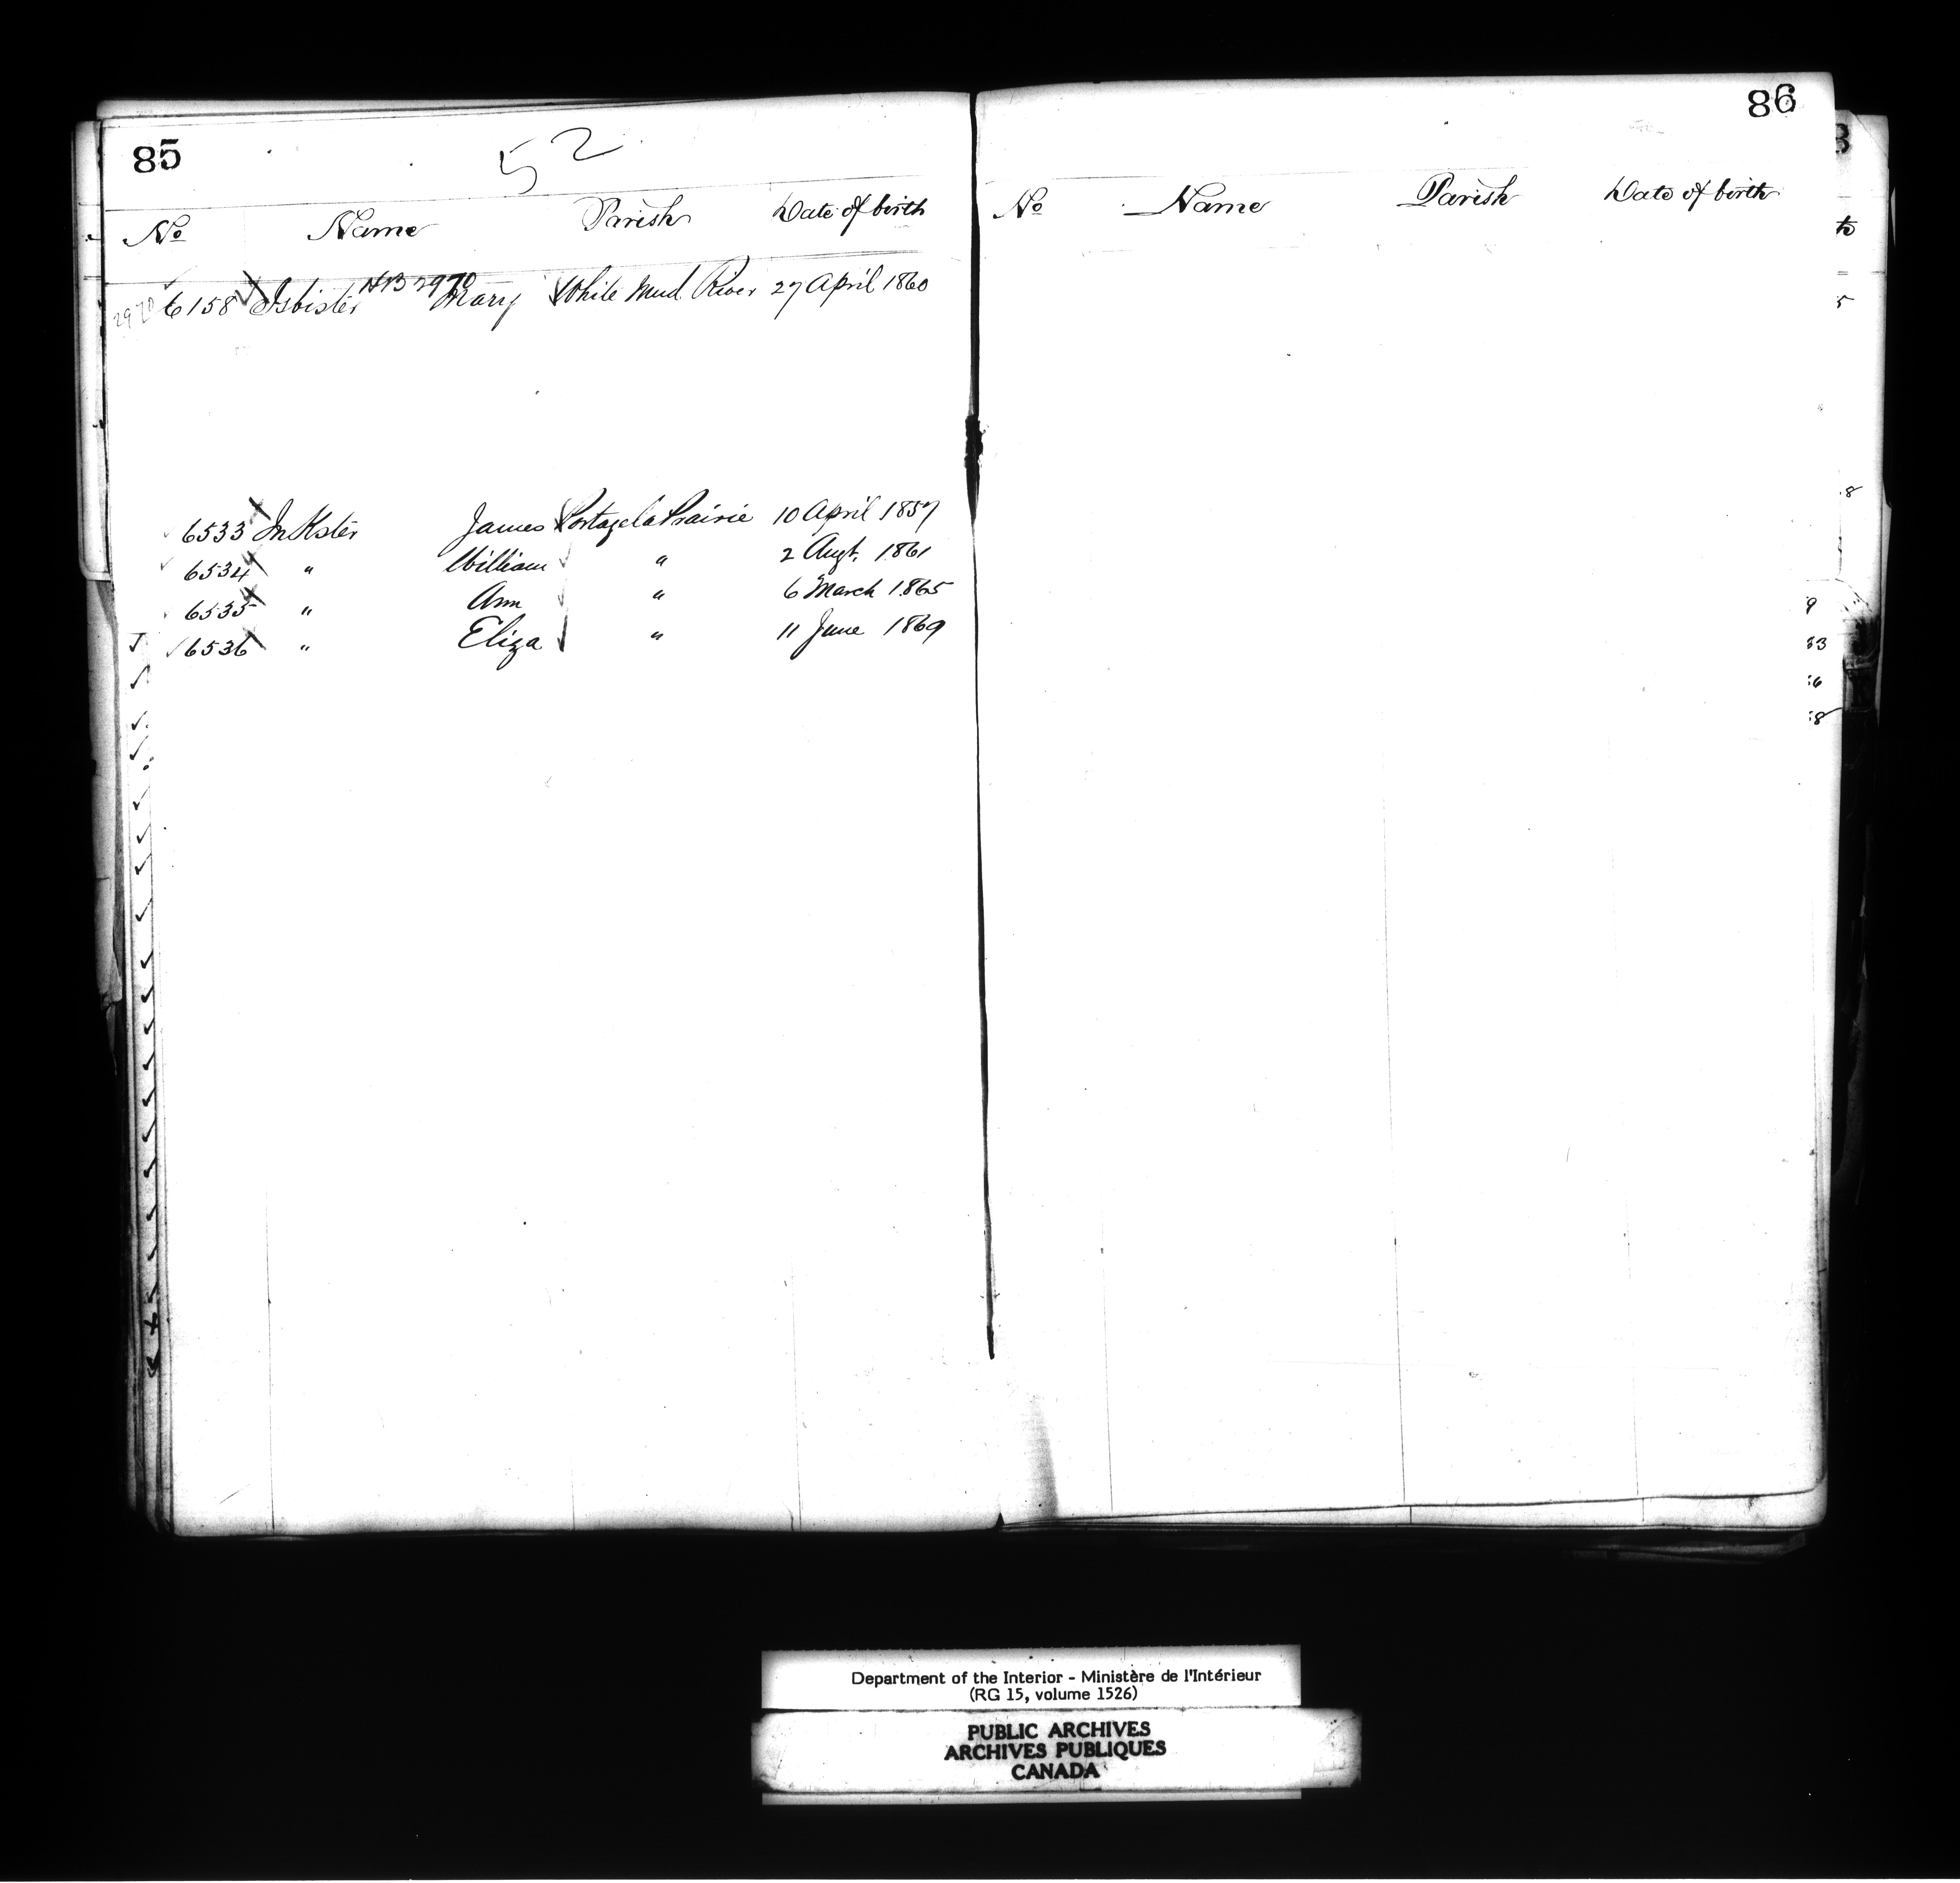 85
52
No Name Parish Date of birth
HB 2970
2970 6158 Isbister Mary White Mud River 27 April 1860
6533 Inkster James Portage la Prairie 10 April 1857
6534 " William " 2 Augt. 1861
6535 " Ann " 6 March 1865
6536 " Eliza " 11 June 1869
86
No Name Parish Date of birth
Department of the Interior - Ministère de l'Intérieur
(RG 15, volume 1526)
PUBLIC ARCHIVES
ARCHIVES PUBLIQUES
CANADA